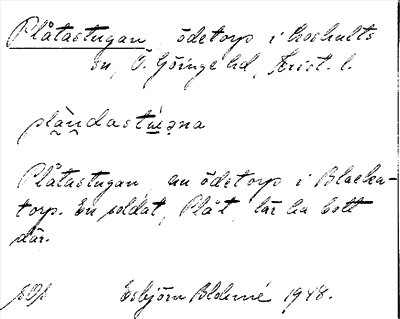 Plåtastugan, ödetorp i Loshults
sn, Ö. Göinge hd, Krist. l.
Plåtastugan, en ödetorp i Blacka-
torp. En soldat, Plåt, lär ha bott
där.
Esbjörn 1948.